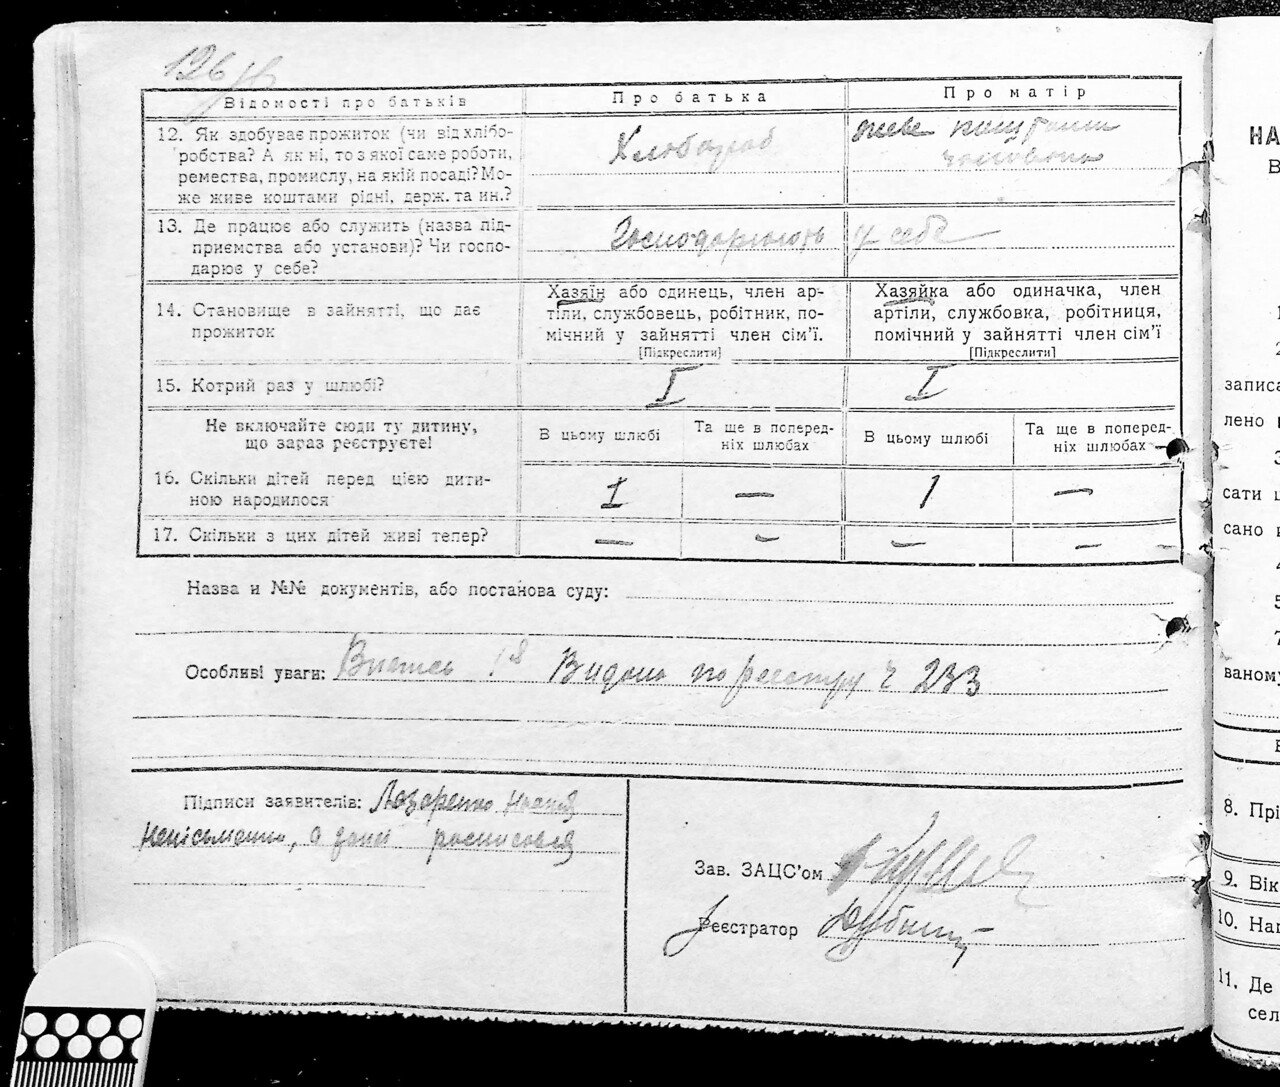 126
Відомості про батьків
Про батька
Про матір
12. Як здобуває прожиток (чи від хлібо-
робства? А як ні, то з якої саме роботи,
ремества, промислу, на якій посаді? Мо-
же живе коштами рідні, держ. та ин.?
Хлібороб
живе коштами
чоловіка
13. Де працює або служить (назва під-
приємства або установи)? Чи госпо-
дарює у себе?
Господарюють у себе
14. Становище в зайнятті, що дає
прожиток
Хазяїн або одинець, член ар-
тіли, службовець, робітник, по-
мічний у зайнятті член сім'ї.
[Підкреслити]
Хазяйка або одиначка, член
артіли, службовка, робітниця,
помічний у зайнятті член сім'ї
[Підкреслити]
15. Котрий раз у шлюбі?
I
I
Не включайте сюди ту дитину,
що зараз реєструєте!
В цьому шлюбі
Та ще в поперед-
ніх шлюбах
В цьому шлюбі
Та ще в поперед-
ніх шлюбах
16. Скільки дітей перед цією дити-
ною народилося
I — 1 —
17. Скільки з цих дітей живі тепер?
— — — —
Назва и №№ документів, або постанова суду:
Особливі уваги: Видано по реєстру ч 233
Підписи заявителів: Лазаренко
Зав. ЗАЦС'ом
Реєстратор
НА
В
1
2
записа
лено
З
сати
сано
4
5
7
ваному
8. Прі
9. Вік
10. Нац
11. Де
сел